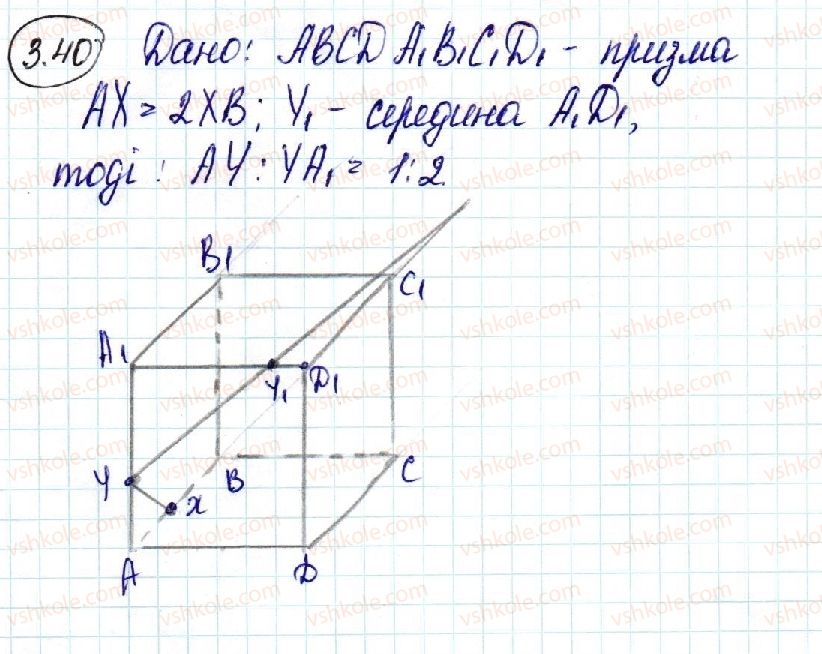 3.40 Дано: ABCDA₁B₁C₁D₁ - призма
AX = 2XB; Y₁ - середина A₁D₁,
тоді: AY : YA₁ = 1:2.
B₁
C₁
A₁
Y₁
D₁
Y
X
B
C
A
D
vshkole.com